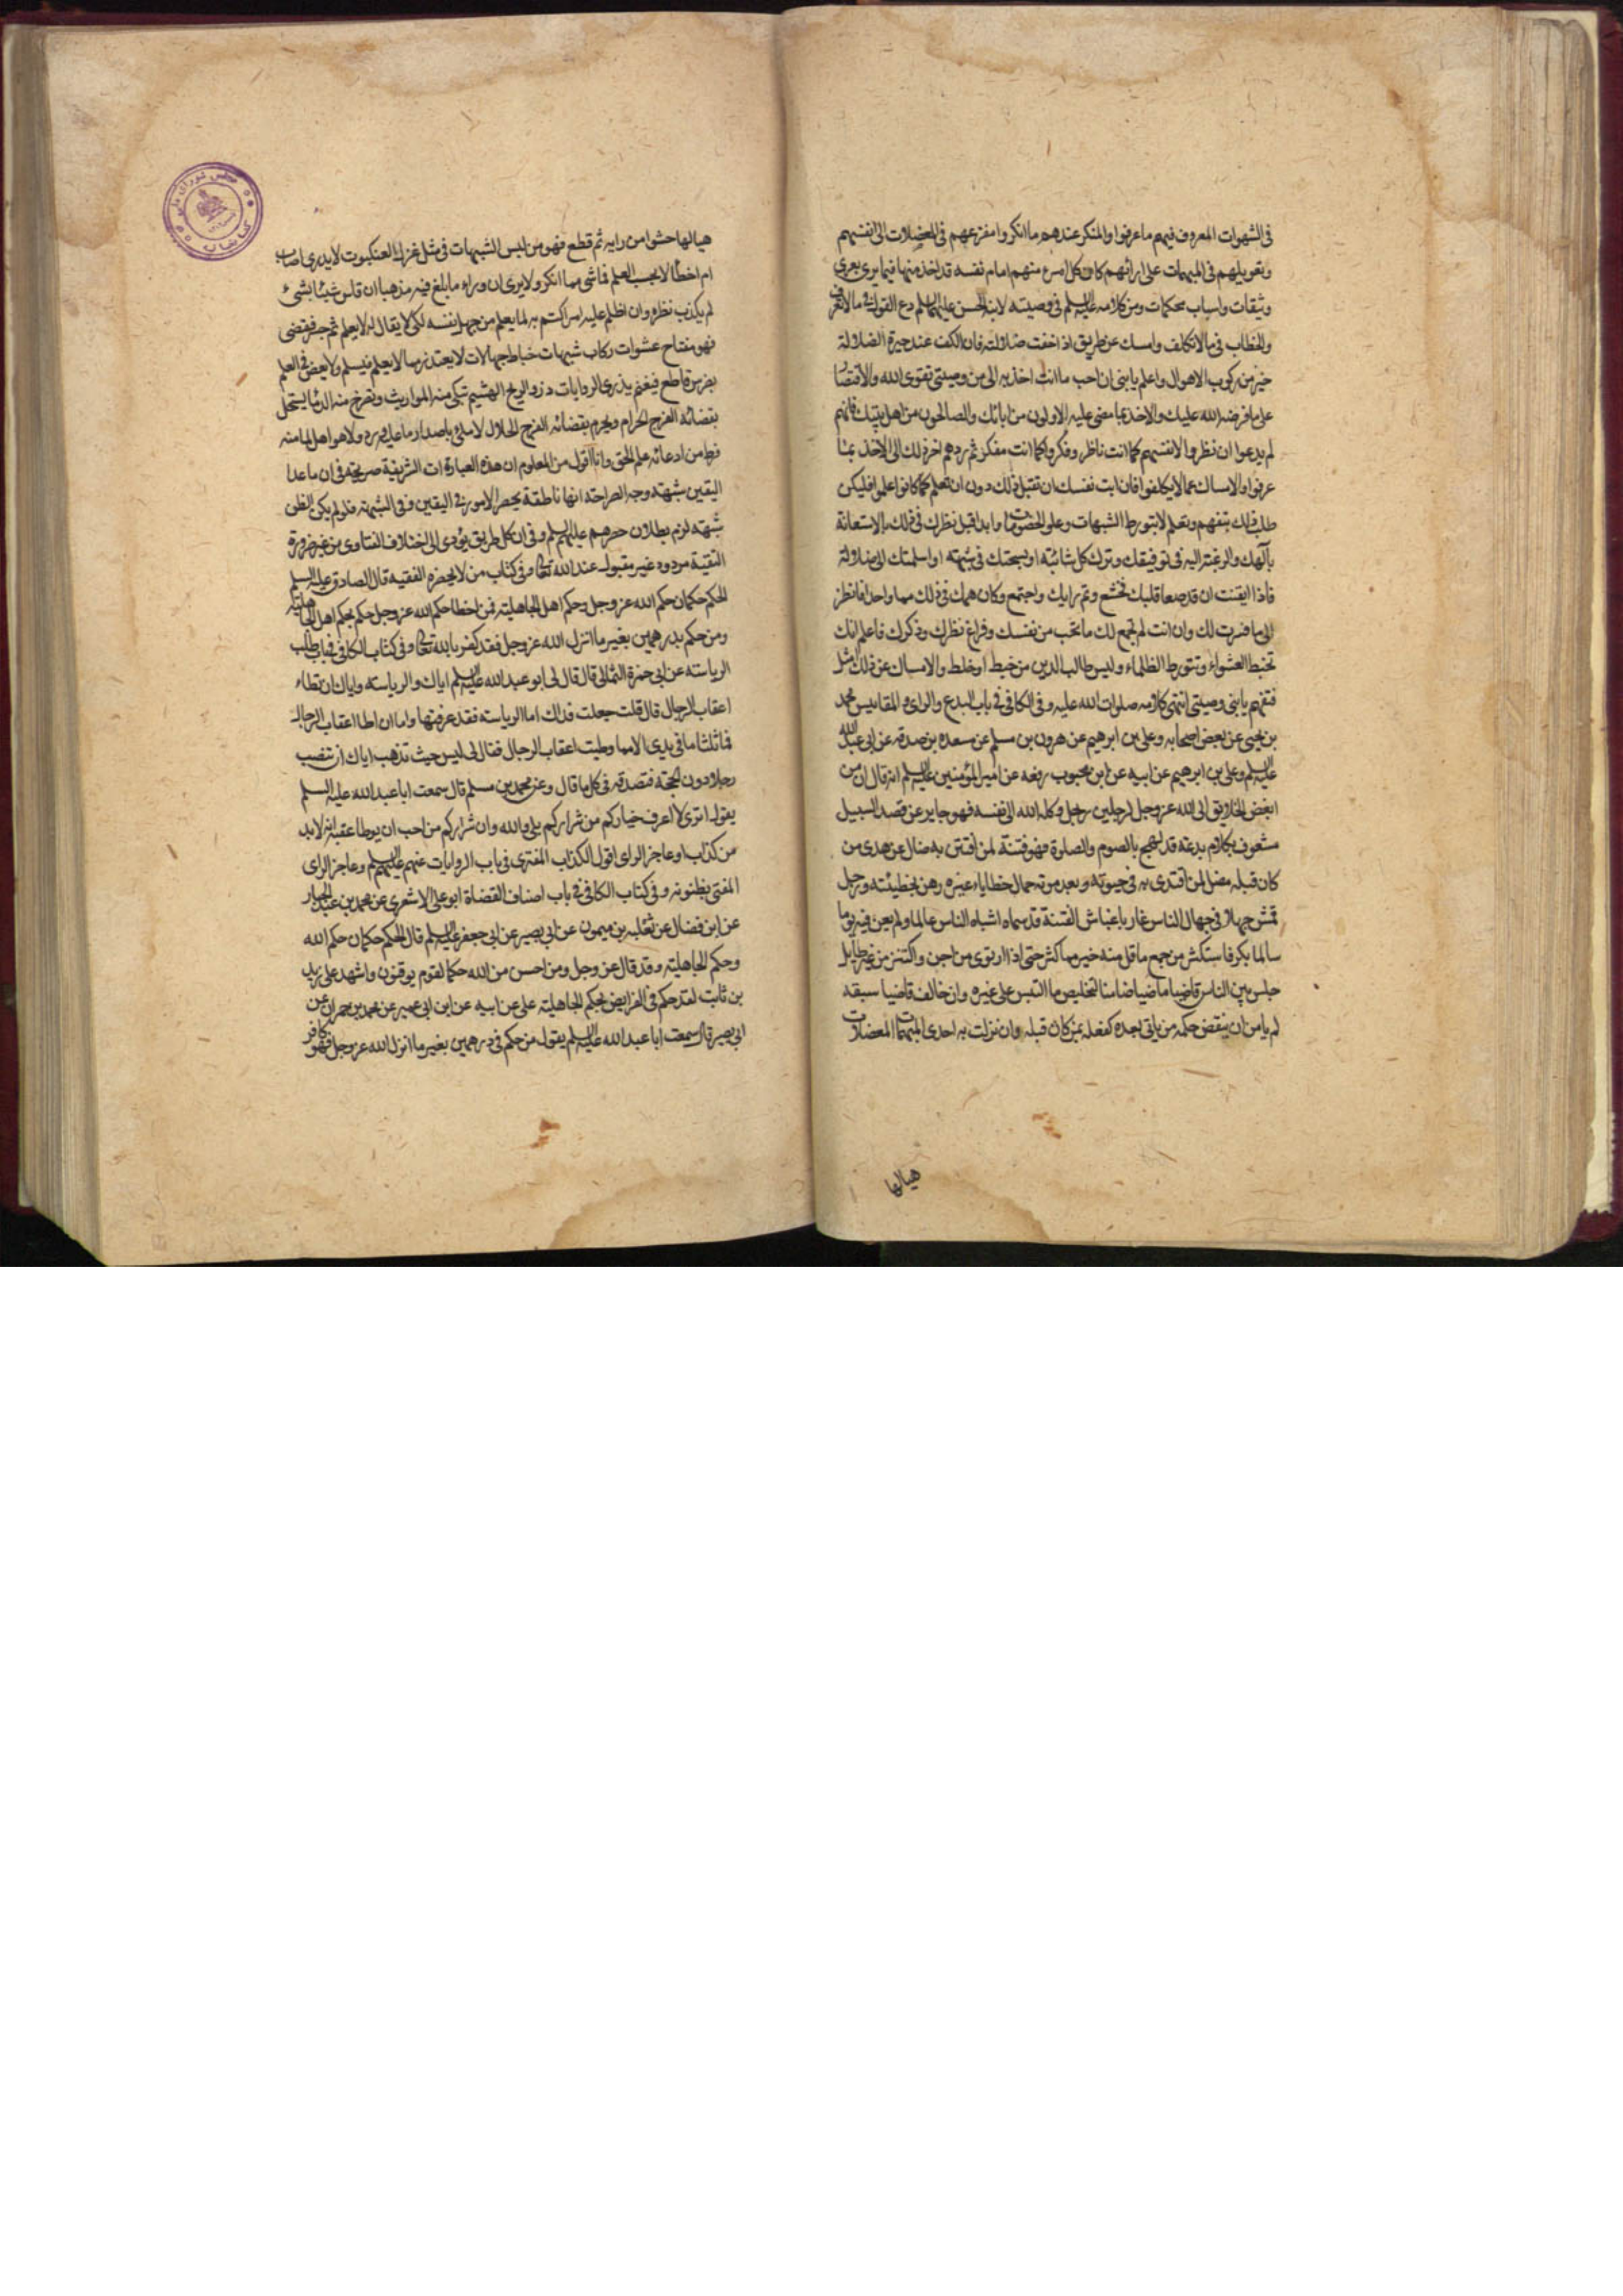 فى الشهوات المعروف فيهم ما عرفوا والمنكر عندهم ما انكروا مفزعهم فى المعضلات الى انفسهم
وتعويلهم فى المبهمات على ارائهم كان كل امرء منهم امام نفسه قد اخذ منها فيما يرى بعرى
وثيقات واسباب محكمات ومن كلامه عليه السلم فى وصيته لابنه الحسن عليهما السلم دع القول فى ما لا تعرف
والخطاب فى ما لا تكلف وامسك عن طريق اذا خفت ضلالته فان الكف عند حيرة الضلالة
خير من ركوب الاهوال واعلم يا بنى ان احب ما انت اخذ به الى من وصيتى تقوى الله والاقتصا
على ما فرضه الله عليك والاخذ بما مضى عليه الاولون من ابائك والصالحون من اهل بيتك فانهم
لم يدعوا ان نظروا لانفسهم كما انت ناظر وفكروا كما انت مفكر ثم ردهم اخر ذلك الى الاخذ بما
عرفوا والامساك عما لا يكلفوا فان ابت نفسك ان تقبل ذلك دون ان تعلم كما كانوا علموا فليكن
طلب ذلك بتفهم وتعلم لا بتورط الشبهات وعلو الخصومات وابدا قبل نظرك فى ذلك بالاستعانة
بآلهك والرغبة اليه فى توفيقك وترك كل شائبة اولجتك فى شبهه او اسلمتك الى ضلالة
فاذا ايقنت ان قد صفا قلبك فخشع وتم رايك واجتمع وكان همك فى ذلك هما واحدا فانظر
الى ما فسرت لك وان انت لم تجمع لك ما تحب من نفسك وفراغ نظرك وفكرك فاعلم انك
تخبط العشواء وتتورط الظلماء وليس طالب الدين من خبط او خلط والامساك عن ذلك امثل
فتفهم يا بنى وصيتى انتهى كلامه صلوات الله عليه وفى الكافى فى باب البدع والراى والمقاييس محمد
بن يحيى عن بعض اصحابه وعلى بن ابرهيم عن هرون بن مسلم عن مسعده بن صدقه عن ابى عبد الله
عليه السلم وعلى بن ابرهيم عن ابيه عن ابن محبوب رفعه عن امير المؤمنين عليه السلم انه قال ان من
ابغض الخلايق الى الله عز وجل لرجلين رجل وكله الله الى نفسه فهو جاير عن قصد السبيل
مشعوف بكلام بدعة قد لهج بالصوم والصلوة فهو فتنة لمن افتتن به ضال عن هدى من
كان قبله مضل لمن اقتدى به فى حيوته وبعد موته حمال خطايا غيره رهن بخطيئته ورجل
قمش جهلا فى جهال الناس غار باغباش الفتنة قد سماه اشباه الناس عالما ولم يعن فيه يوما
سالما بكر فاستكثر من جمع ما قل منه خير مما كثر حتى اذا ارتوى من اجن واكتنز من غير طايل
جلس بين الناس قاضيا ماضيا ضامنا لتخليص ما التبس على غيره وان خالف قاضيا سبقه
لم يامن ان ينقض حكمه من ياتى بعده كفعله بمن كان قبله وان نزلت به احدى المبهمات المعضلات
هيا لها
هيا لها حشوا من رايه ثم قطع فهو من لبس الشبهات فى مثل غزل العنكبوت لا يدرى اصاب
ام اخطأ لا يحسب العلم فى شى مما انكر ولا يرى ان وراء ما بلغ فيه مذهبا ان قاس شيئا بشىء
لم يكذب نظره وان اظلم عليه امر اكتتم به لما يعلم من جهل نفسه لكى لا يقال له لا يعلم ثم جسر فقضى
فهو مفتاح عشوات ركاب شبهات خباط جهالات لا يعتذر مما لا يعلم فيسلم ولا يعض فى العلم
بضرس قاطع فيغنم يذرى الروايات ذرو الريح الهشيم تبكى منه المواريث وتصرخ منه الدما يستحل
بقضائه الفرج الحرام ويحرم بقضائه الفرج الحلال لا ملئ باصدار ما عليه ورد ولا هو اهل لما منه
فرط من ادعائه علم الحق وانا اقول من المعلوم ان هذه العبارات الشريفة صريحه فى ان ما عدا
اليقين شبهه وجه الصراحة انها ناطقة بحصر الامور فى اليقين وفى الشبهه فلو لم يكن الظن
شبهه لزم بطلان حصرهم عليهم السلم وفى ان كل طريق يؤدى الى اختلاف الفتاوى من غير ضرورة
التقية مردود غير مقبول عند الله تعالى وفى كتاب من لا يحضره الفقيه قال الصادق عليه السلم
الحكم حكمان حكم الله عز وجل وحكم اهل الجاهلية فمن اخطا حكم الله عز وجل حكم بحكم اهل الجاهلية
ومن حكم بدرهمين بغير ما انزل الله عز وجل فقد كفر بالله تعالى وفى كتاب الكافى فى باب طلب
الرياسته عن ابى حمزة الثمالى قال قال لى ابو عبد الله عليه السلم اياك والرياسته واياك ان تطاء
اعقاب الرجال قال قلت جعلت فداك اما الرياسته فقد عرفتها واما ان اطا اعقاب الرجال
فما ثلثا ما فى يدى الا مما وطيت اعقاب الرجال فقال لى ليس حيث تذهب اياك ان تنصب
رجلا دون الحجة فتصدقه فى كل ما قال وعن محمد بن مسلم قال سمعت ابا عبد الله عليه السلم
يقول اترى لا اعرف خياركم من شراركم بلى والله وان شراركم من احب ان يوطا عقبه انه لا بد
من كذاب او عاجز الراى اقول الكذاب المفترى فى باب الروايات عنهم عليهم السلم وعاجز الراى
المفتى بظنونه وفى كتاب الكافى فى باب اصناف القضاة ابو على الاشعرى عن محمد بن عبد الجبار
عن ابن فضال عن ثعلبه بن ميمون عن ابى بصير عن ابى جعفر عليه السلم قال الحكم حكمان حكم الله
وحكم الجاهليته وقد قال عز وجل ومن احسن من الله حكما لقوم يوقنون واشهد على زيد
بن ثابت لقد حكم فى الفرايض بحكم الجاهلية على عن ابيه عن ابن ابى عمير عن محمد بن حمران عن
ابى بصير قال سمعت ابا عبد الله عليه السلم يقول من حكم فى درهمين بغير ما انزل الله عز وجل فهو كافر